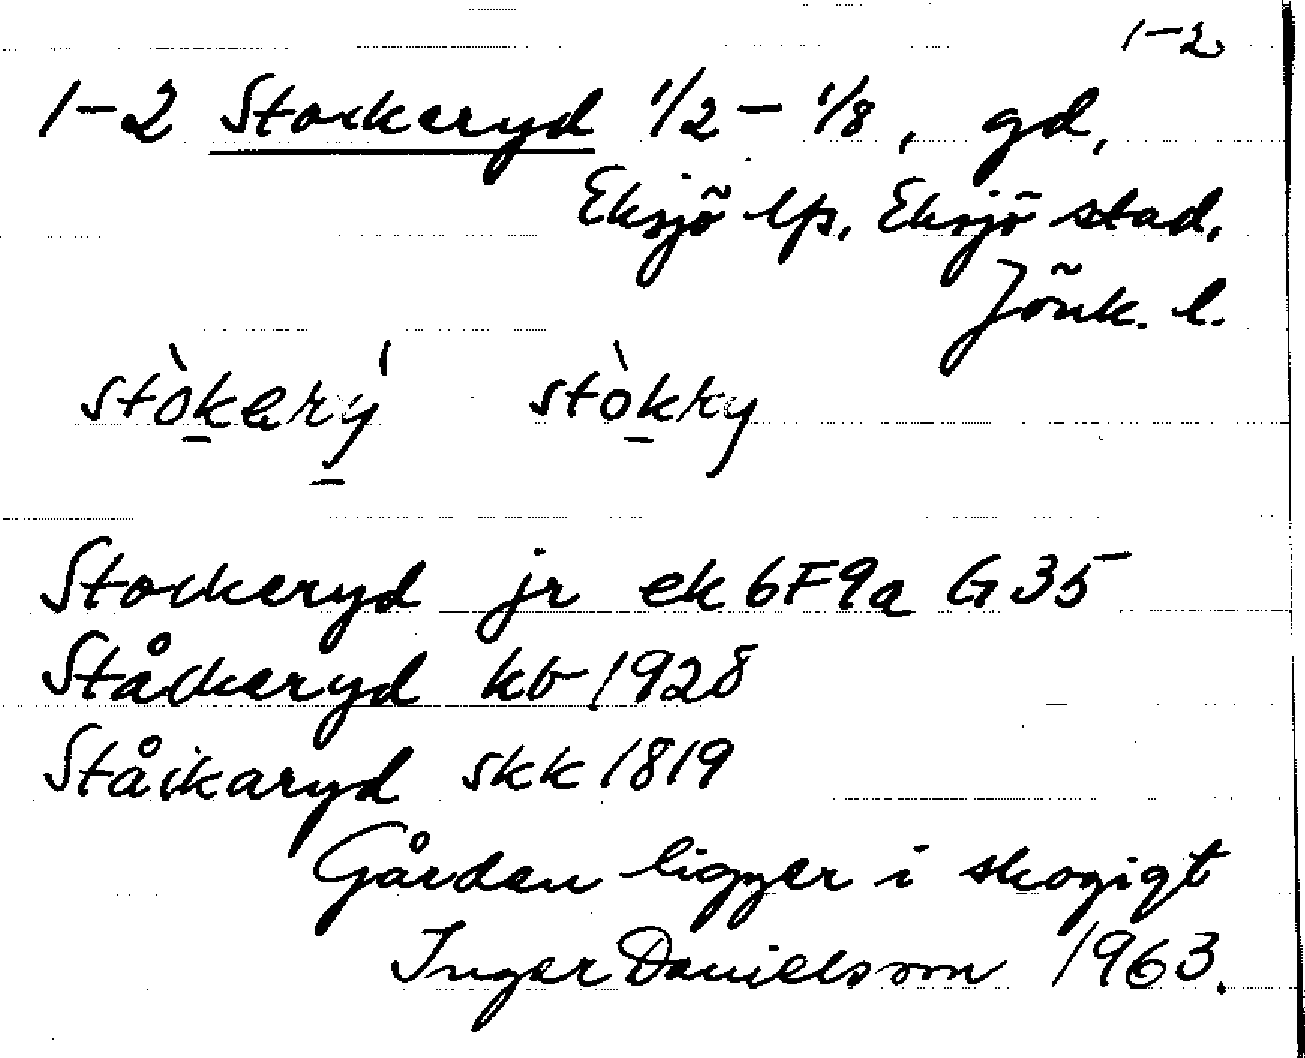 1-2
1-2 Stockeryd 1/2 - 1/8, gd,
Eksjö lfs, Eksjö stad,
Jönk. l.
stòkarý stòkry
Stockeryd jr ek 6F9a G35
Ståckeryd kb 1928
Ståckaryd skk 1819
Gården ligger i skogigt
Inger Danielsson 1963.